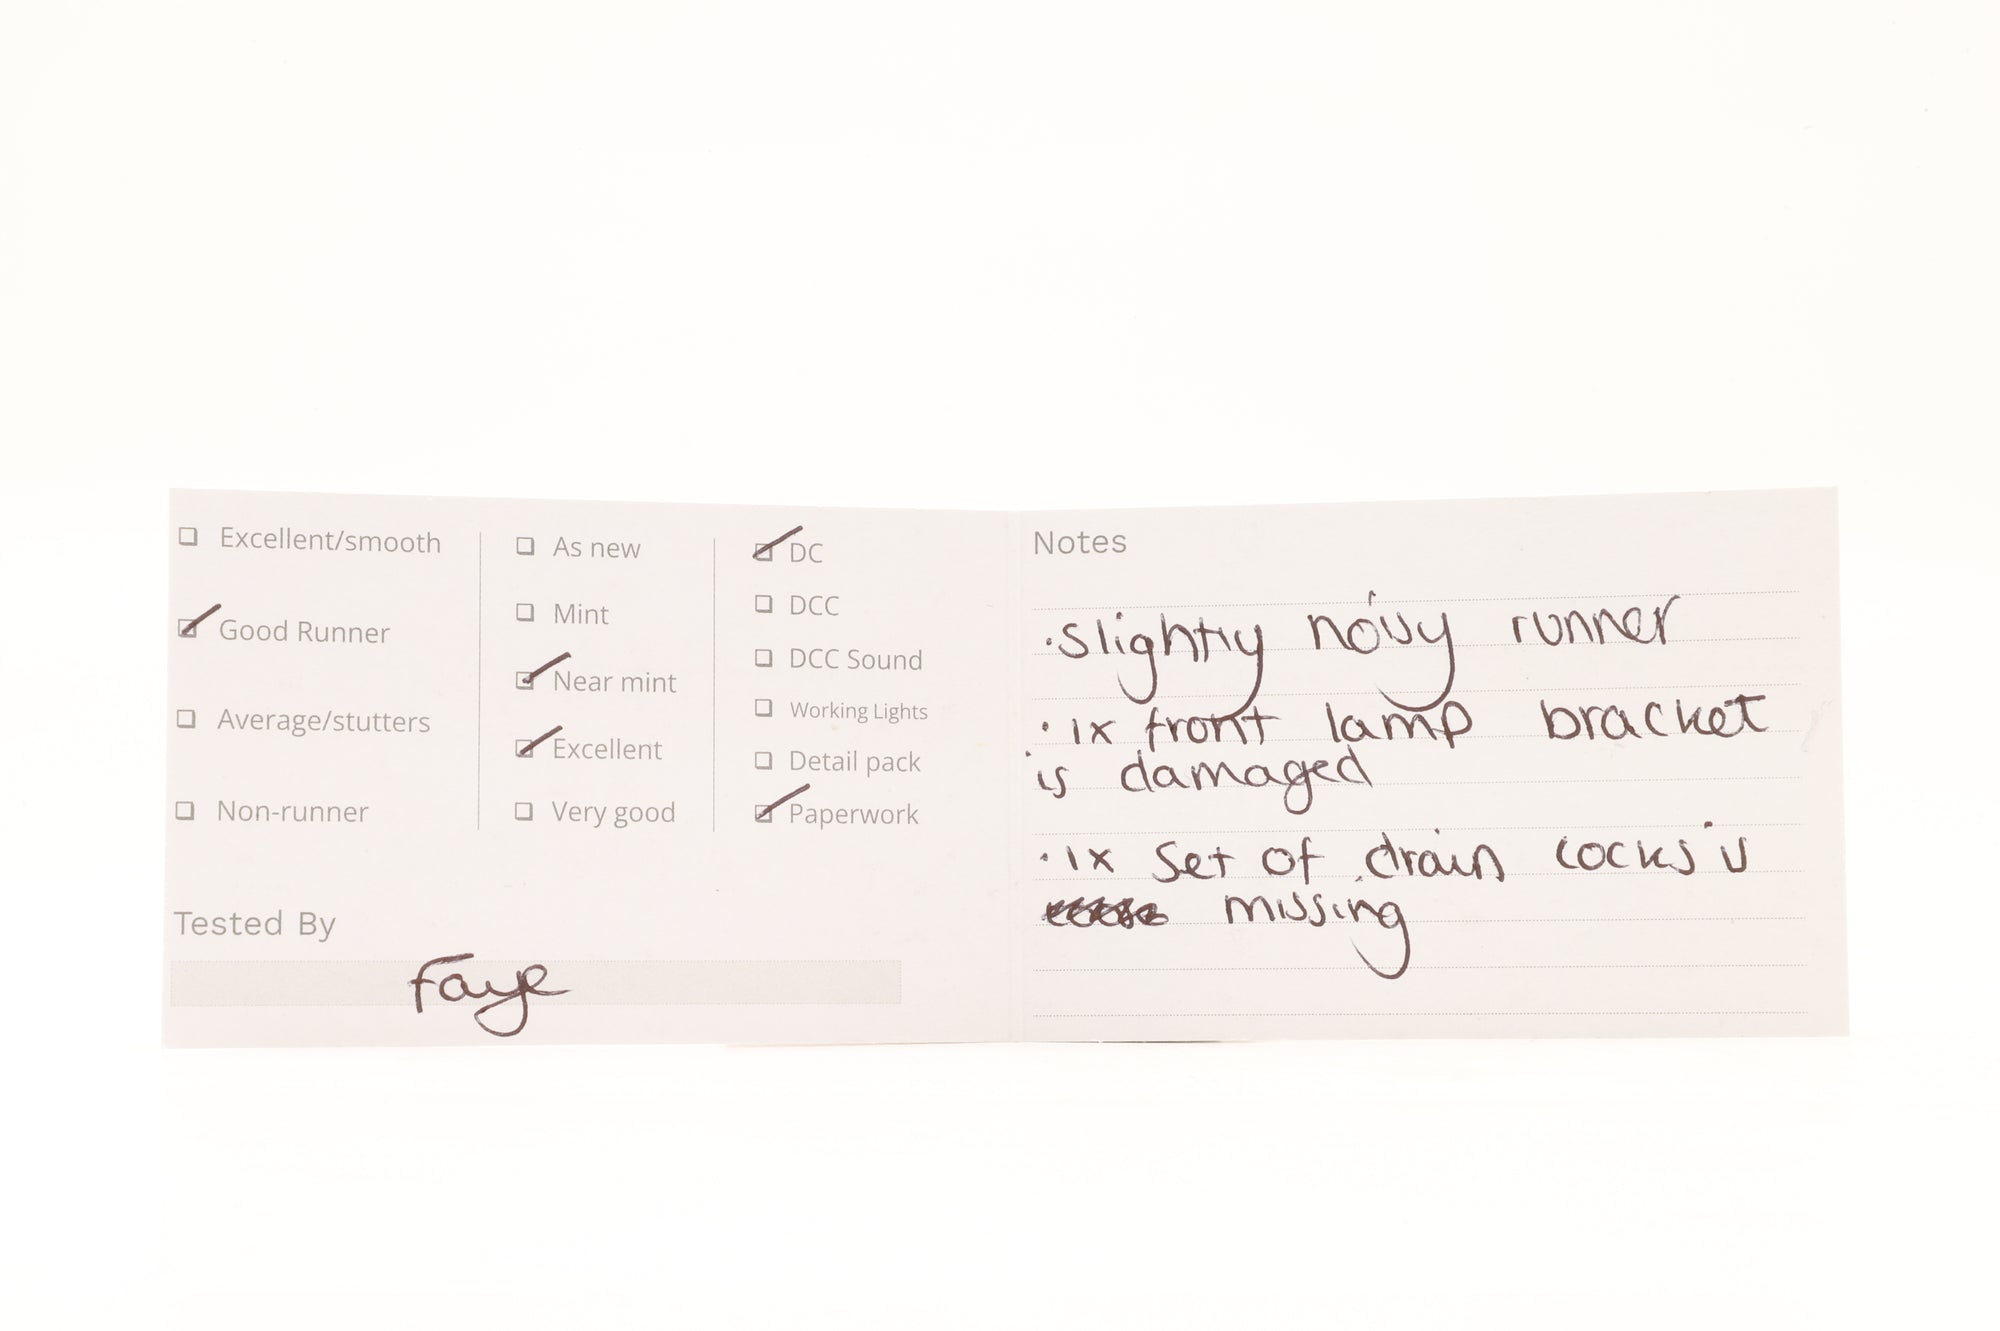 Excellent/smooth
Good Runner
Average/stutters
Non-runner
As new
Mint
Near mint
Excellent
Very good
DC
DCC
DCC Sound
Working Lights
Detail pack
Paperwork
Tested By
Faye
Notes
·Slightly noisy runner
·1x front lamp bracket
is damaged
·1x Set of drain cocks is
missing